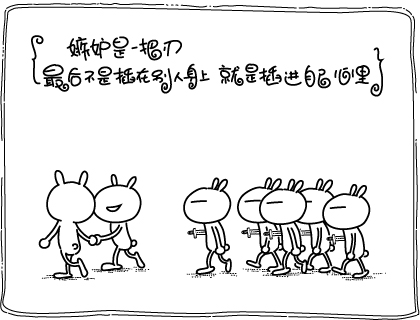 嫉妒是一把刀
最后不是插在别人身上 就是插进自己心里